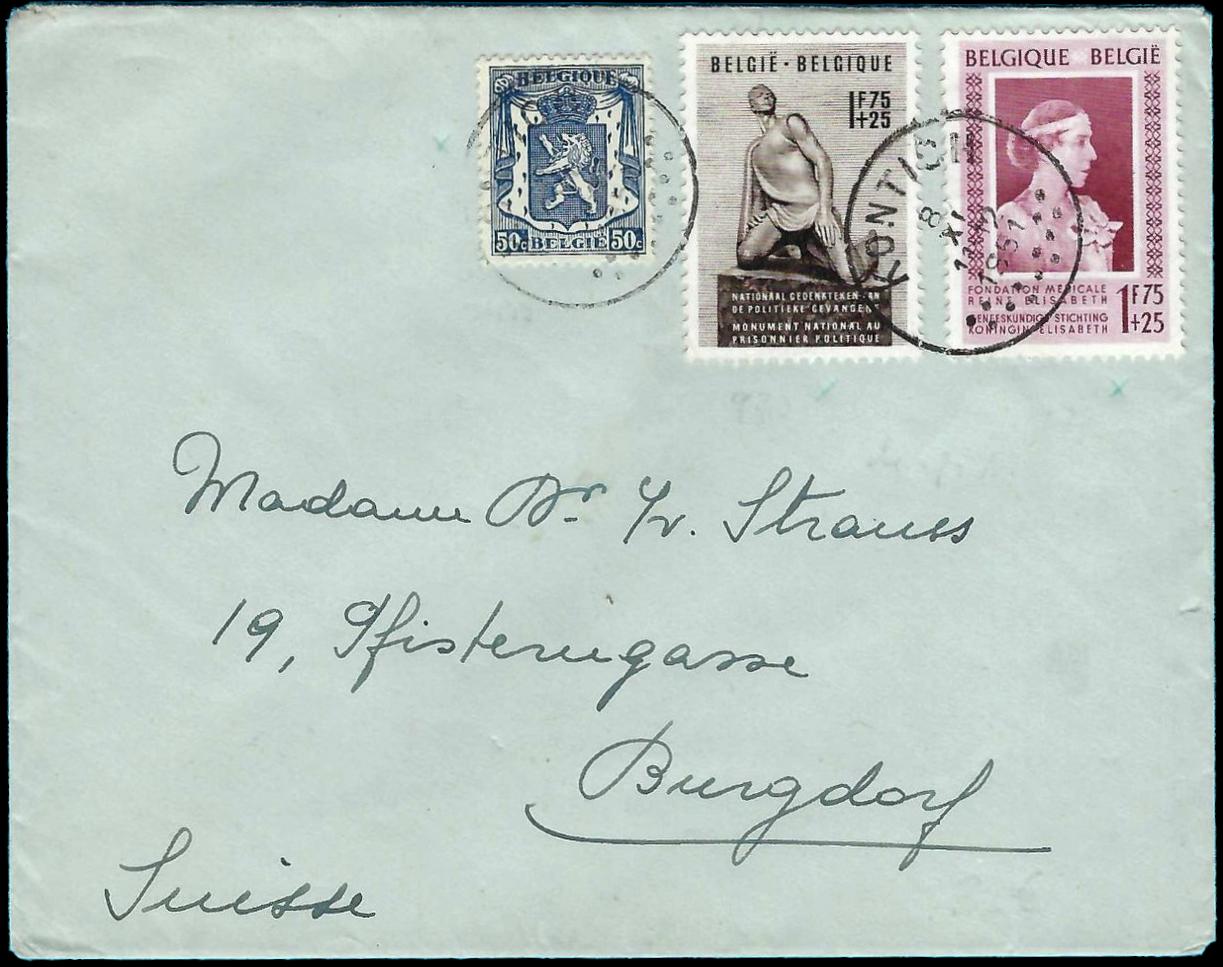 BELGIQUE
50c BELGIË 50c
BELGIË · BELGIQUE
1F75
+25
NATIONAAL GEDENKTEKEN AAN
DE POLITIEKE GEVANGENE
MONUMENT NATIONAL AU
PRISONNIER POLITIQUE
BELGIQUE BELGIË
FONDATION MEDICALE
REINE ELISABETH
GENEESKUNDIGE STICHTING
KONINGIN ELISABETH
1F75
+25
KONTICH
8 XI
1951
Madame Dr. Yv. Strauss
19, Pfisterngasse
Burgdorf
Suisse